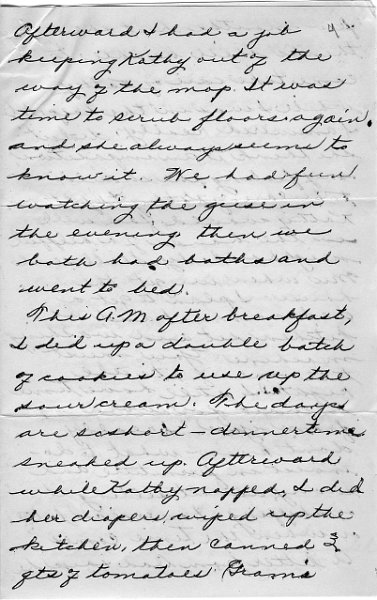 4.
Afterward I had a job
keeping Kathy out of the
way of the mop. It was
time to scrub floors again
and she always seems to
know it. We had fun
watching the geese in
the evening then we
both had baths and
went to bed.
This A.M after breakfast,
I did up a double batch
of cookies to use up the
sour cream. The days
are so short - dinnertime
sneaked up. Afterward
while Kathy napped, I did
her diapers, wiped up the
kitchen, then canned
qts of tomatoes